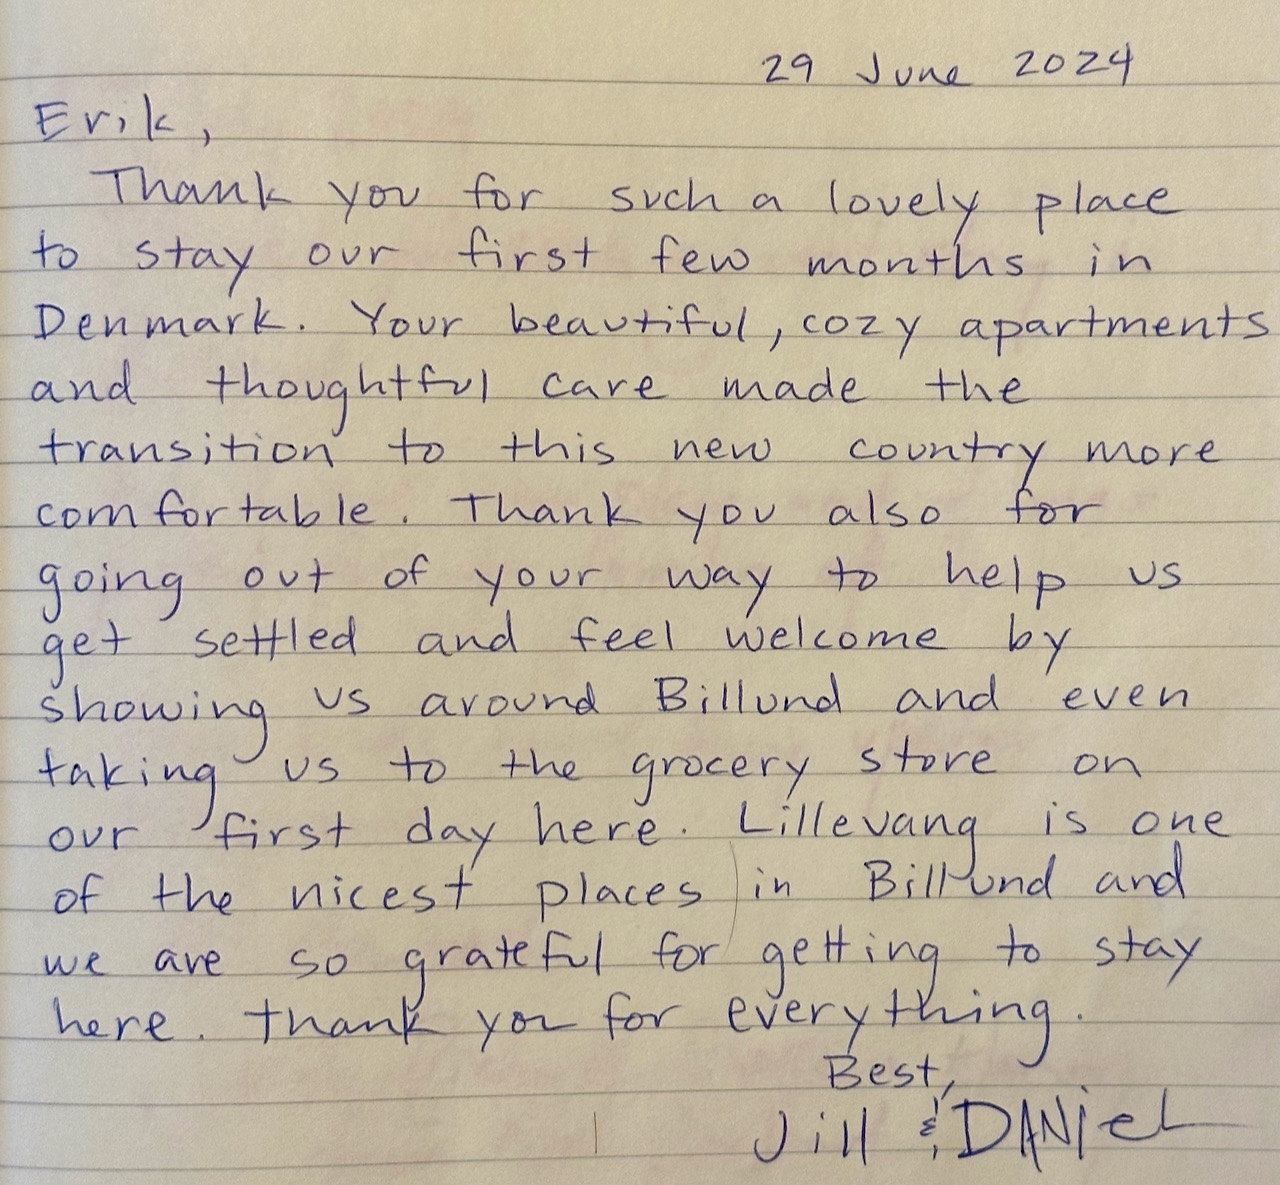 29 June 2024
Erik,
Thank you for such a lovely place
to stay our first few months in
Denmark. Your beautiful, cozy apartments
and thoughtful care made the
transition to this new country more
comfortable. Thank you also for
going out of your way to help us
get settled and feel welcome by
showing us around Billund and even
taking us to the grocery store on
our first day here. Lillevang is one
of the nicest places in Billund and
we are so grateful for getting to stay
here. Thank you for everything.
Best,
Jill & DANiEL